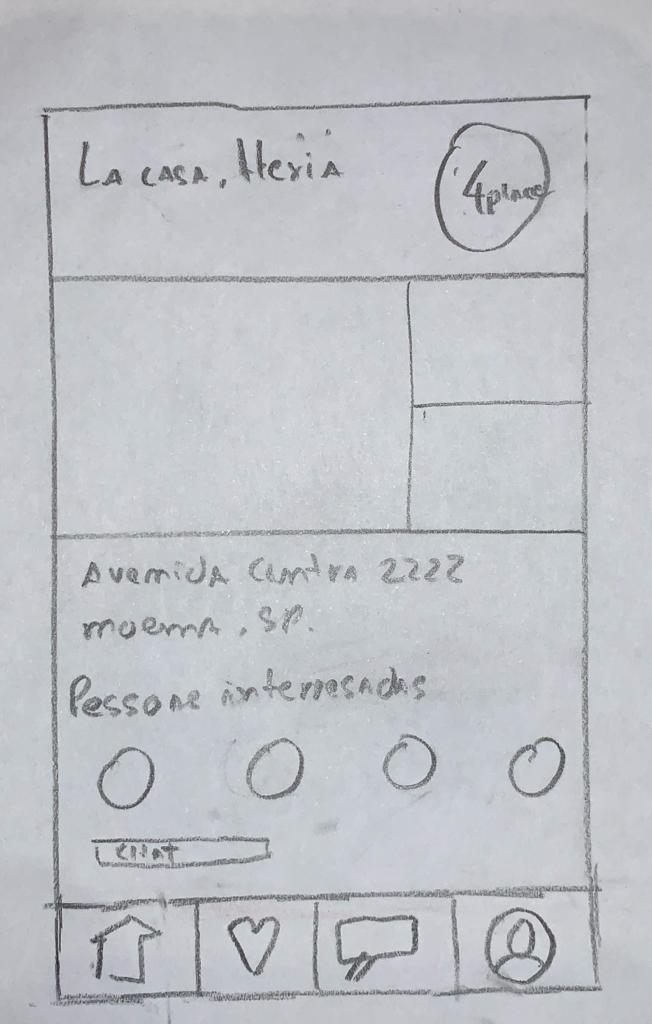 La casa,
4 place
Avenida
2222
moema, SP.
Pessoas interresadas
Chat